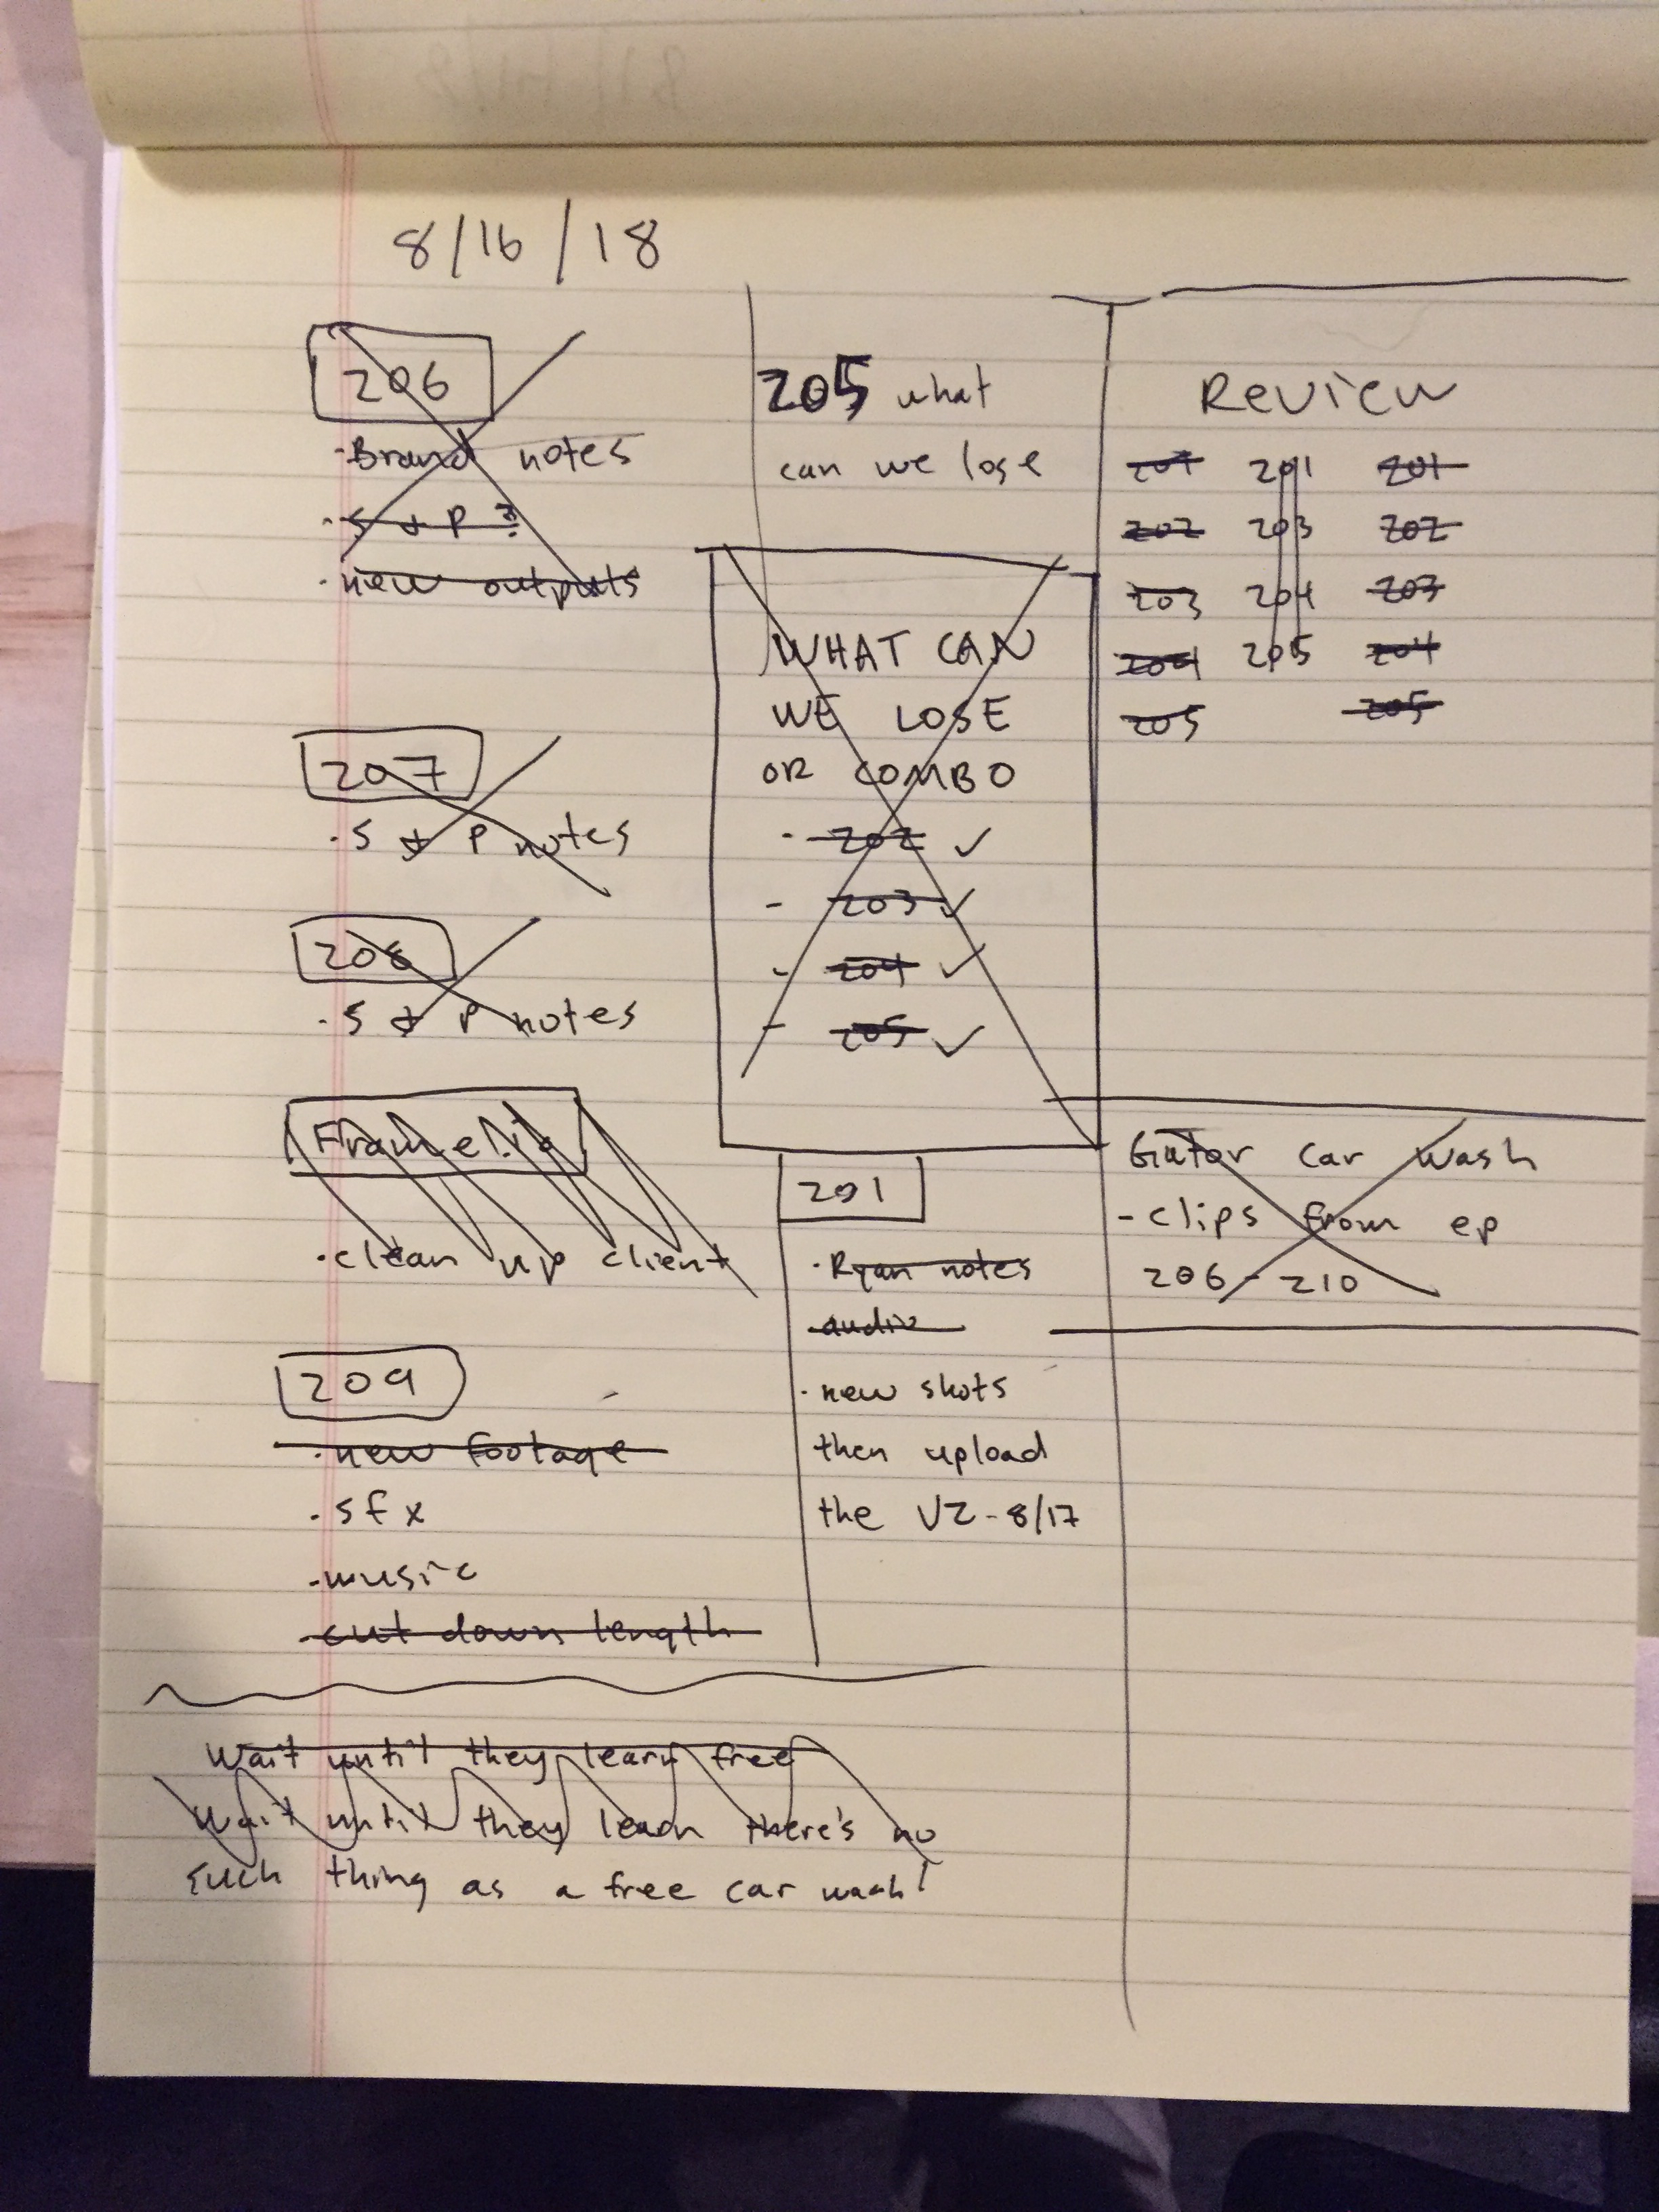 8/16/18
206
·Brand notes
·S & P ?
·new outputs
207
·S & P notes
208
·S & P notes
Frame.io
·clean up client
209
·new footage
·sfx
·music
·cut down length
205 what
can we lose
WHAT CAN
WE LOSE
OR COMBO
- 202 ✓
- 203 ✓
- 204 ✓
- 205 ✓
201
·Ryan notes
audio
·new shots
then upload
the V2-8/17
Review
201 201 201
202 203 202
203 204 203
204 205 204
205 205
Gator car wash
-clips from ep
206-210
Wait until they learn free
Wait until they learn there's no
such thing as a free car wash!